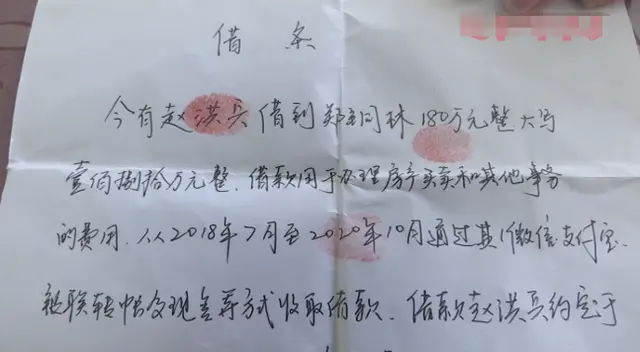 借条
今有赵洪兵借到郑 180万元整大写
壹佰捌拾万元整.借款用于办理房产买卖和其他事务
的费用.从2018年7月至2020年10月通过其微信支付宝
转帐及现金等方式收取借款.借款赵洪兵约定于